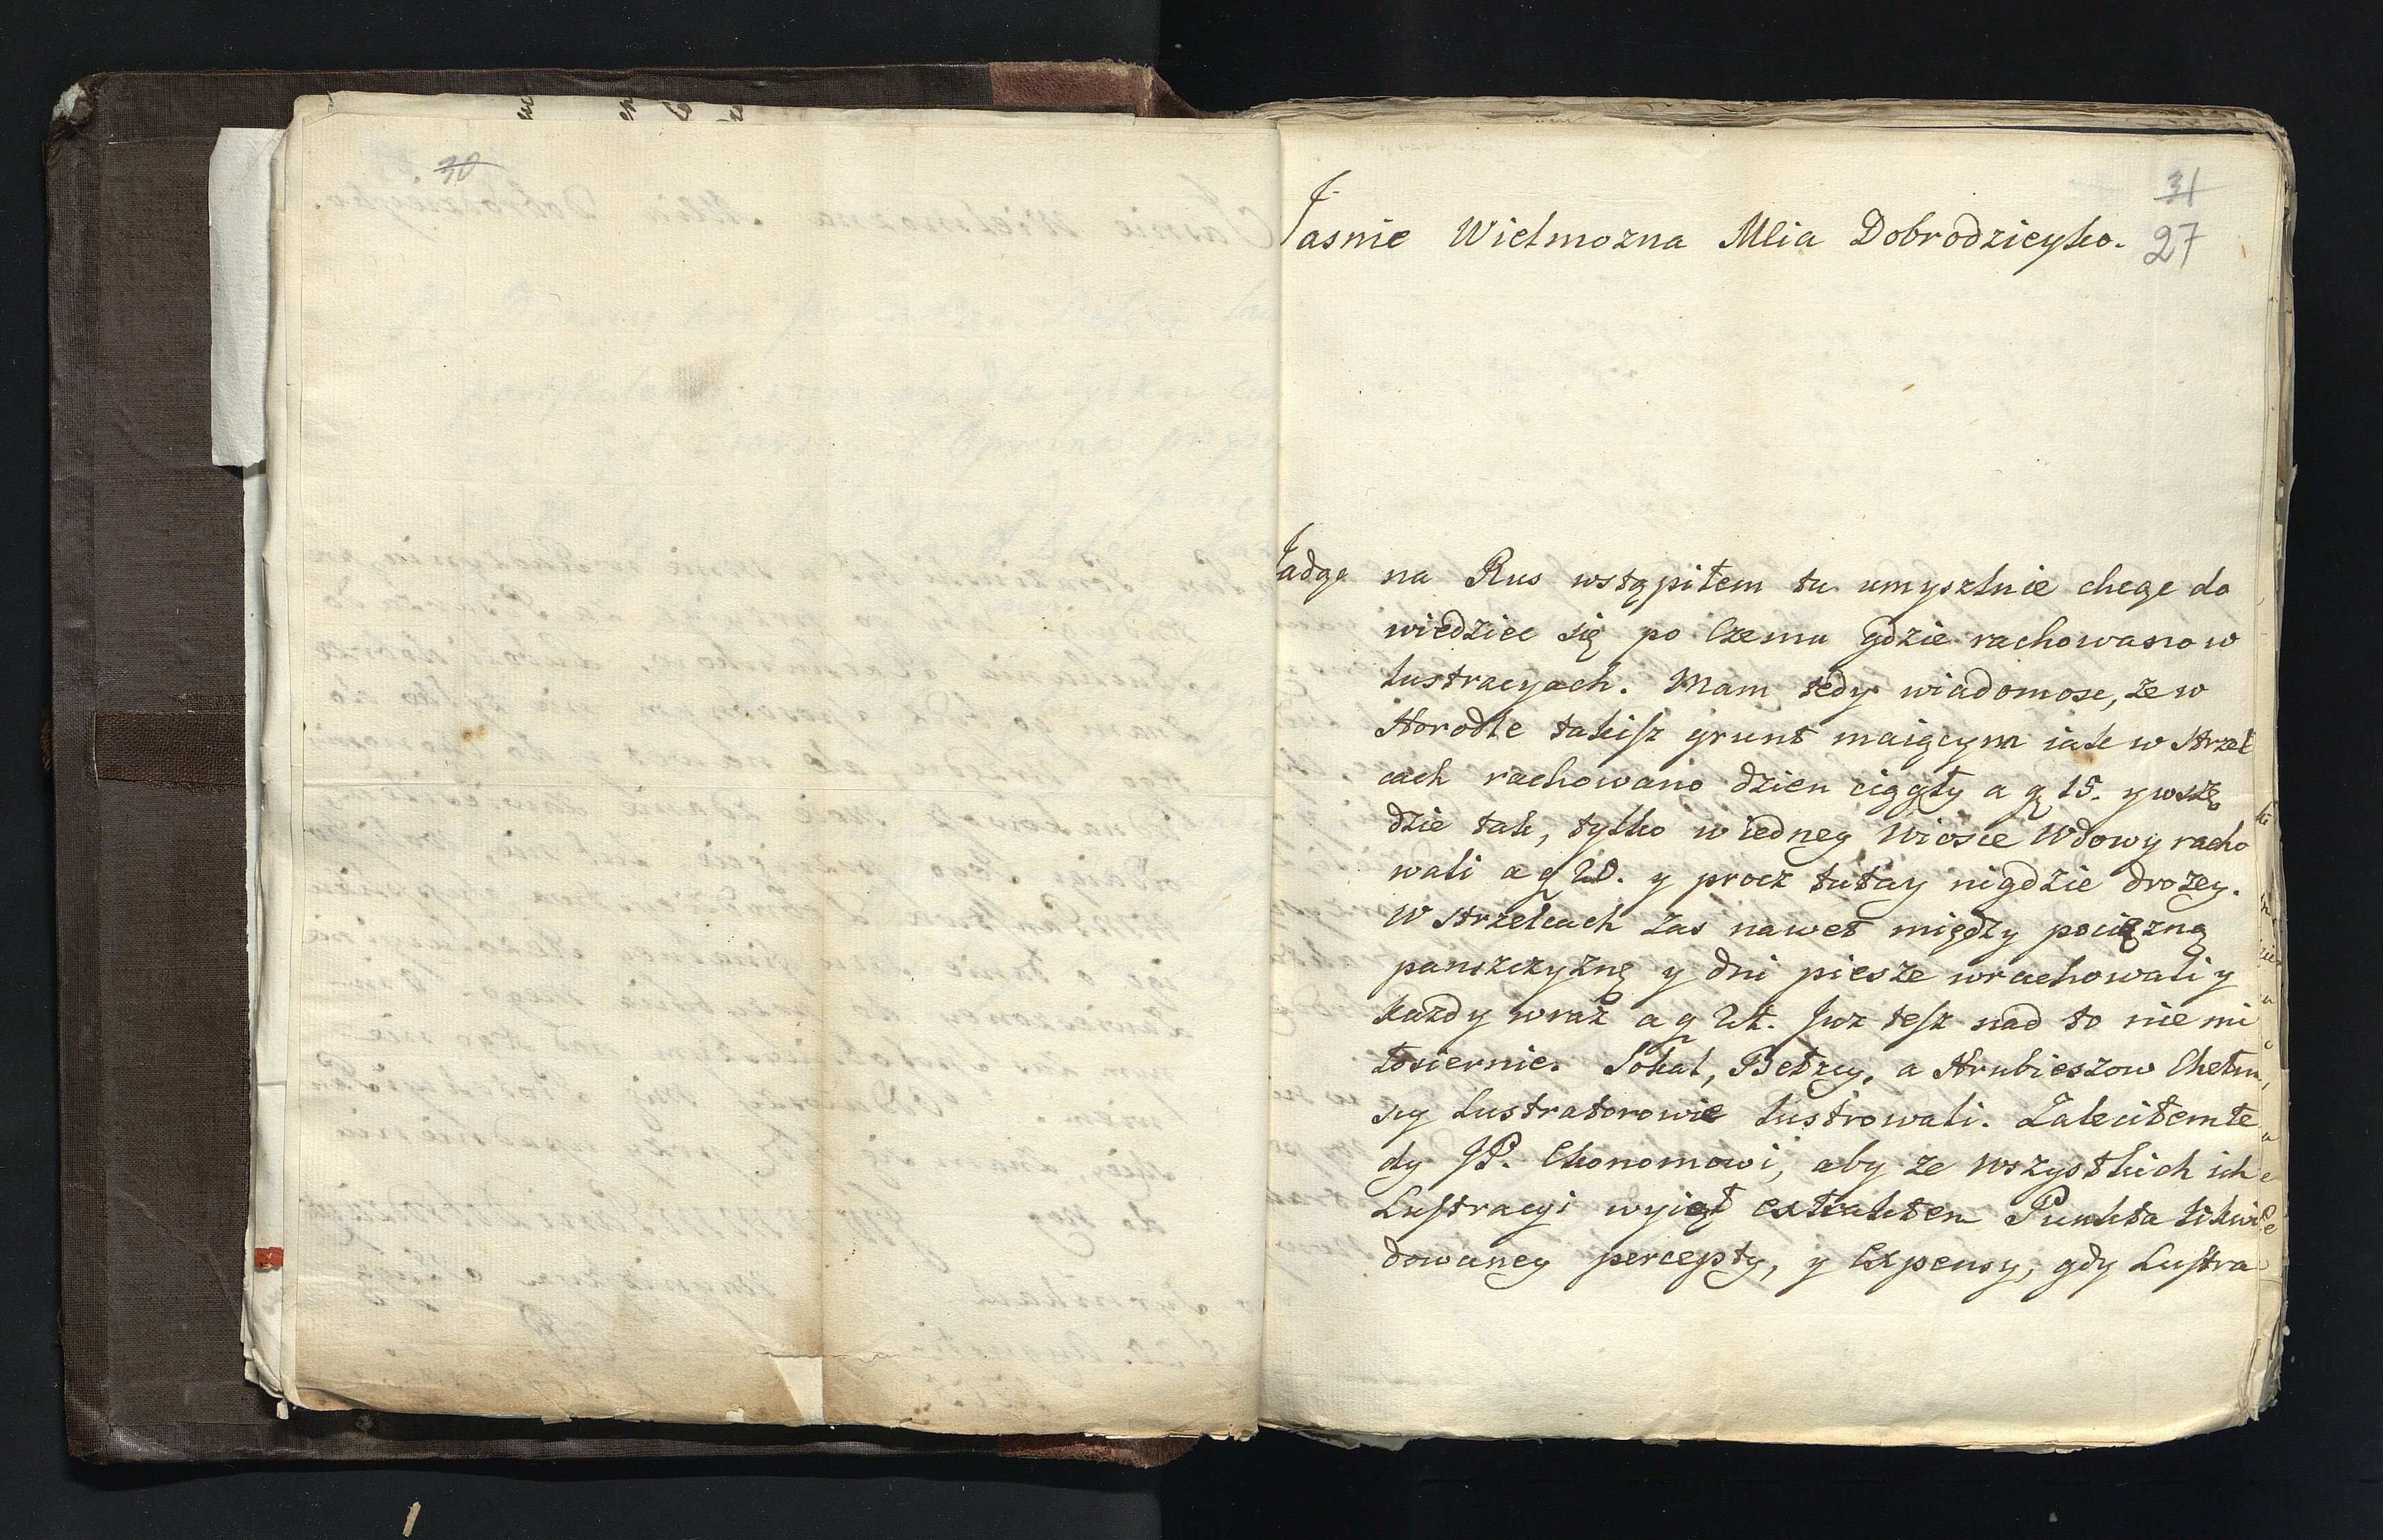 30
31
27
Jasnie Wielmozna Mlia Dobrodzieyko.
Jadąc na Rus wstąpiłem tu umyszlnie chcąc do
wiedziec się po czemu gdzie rachowano w
lustracyach. Mam tedy wiadomosc, ze w
Horodle takiſz grunt maiącym iak w Strzel
cach rachowano dzien ciągły a g 15. y wszę
dzie tak, tylko w iedney Wiosce Wdowy racho
wali a g 20. y procz tutay nigdzie drozey.
W Strzelcach zas nawet między pociązną
panszczyznę y dni piesze wrachowali y
kazdy wraz a g 24. Juz teſz nad to nie mi
łosiernie. Sokal, Bełzcy, a Hrubieszow Chełm
scy Lustratorowie lustrowali. Zaleciłem te
dy JP. Ekonomowi, aby ze wszystkich ich
Luſtracyi wyiął extraktem Punkta likwi
dowaney percepty, y Expensy, gdy Luſtra